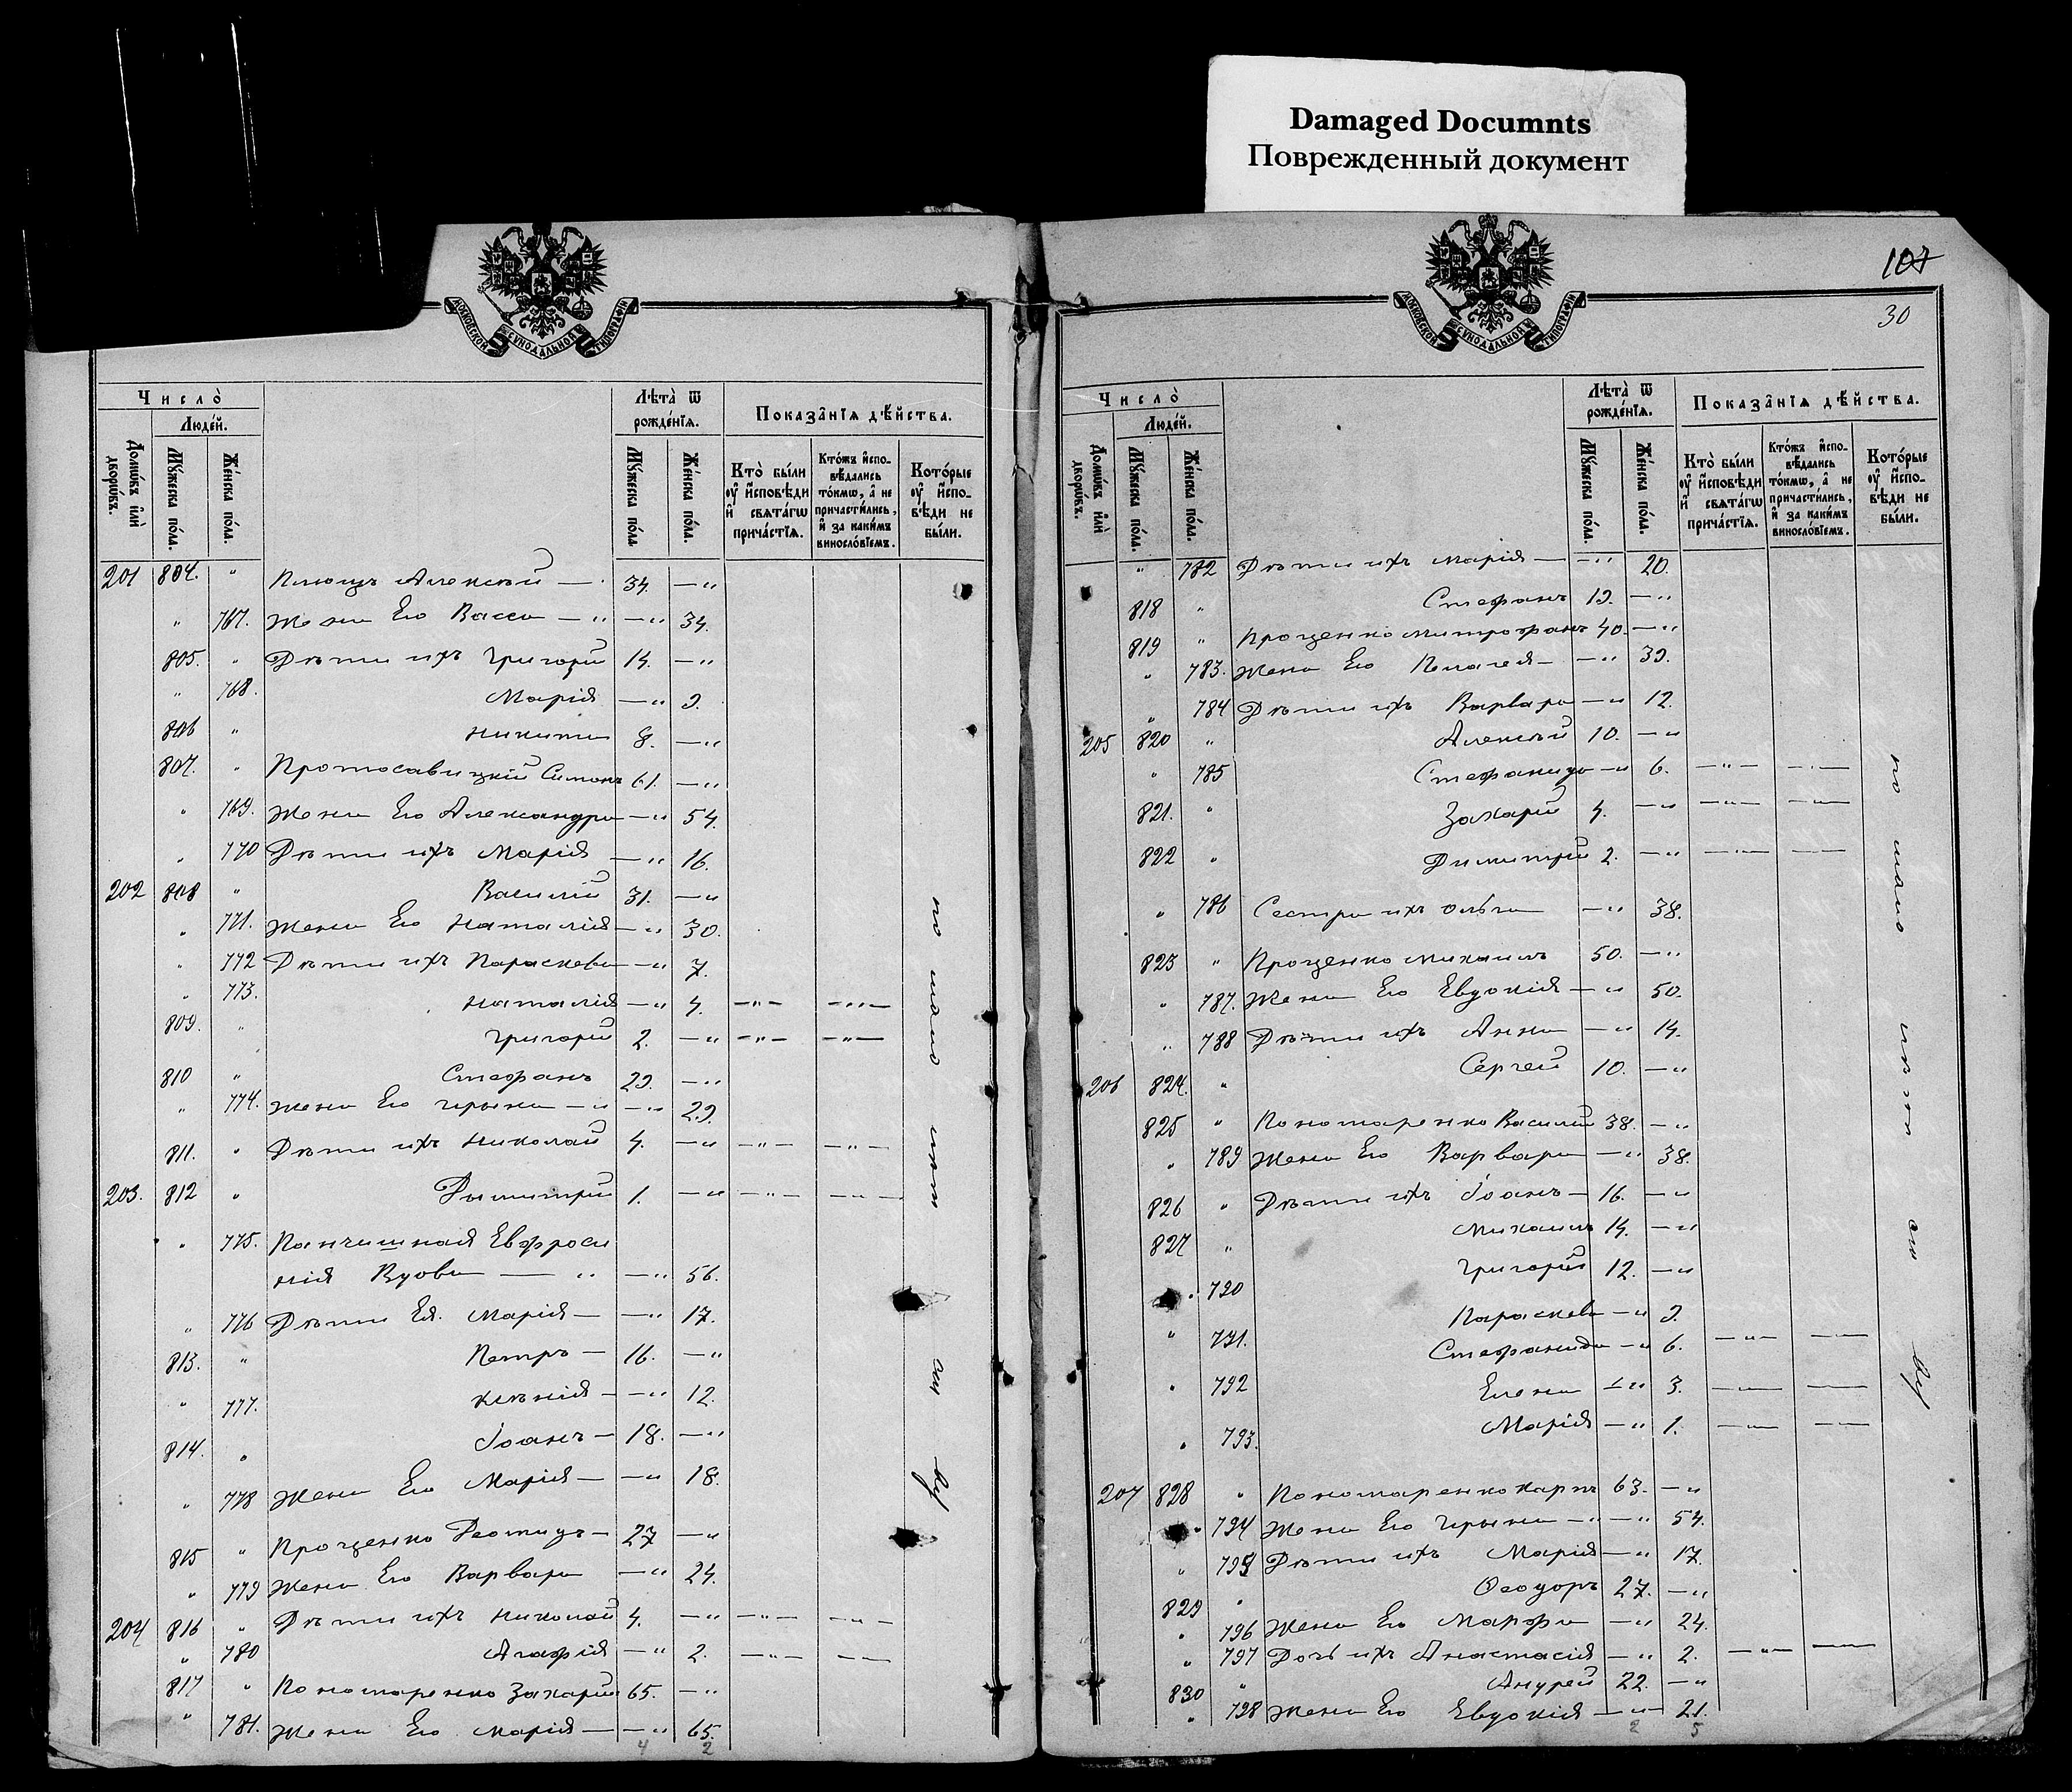 Damaged Documnts
Поврежденный документ
107
30
МОСКОВСКОЙ СѴНОДАЛЬНОЙ ТИПОГРАФІИ
Число̀
Люде́й.
Домѡ́въ и҆лѝ дворѡ́въ.
Мꙋ́жеска по́ла.
Же́нска по́ла.
Лѣ́та ѿ рожде́нїѧ.
Мꙋ́жеска по́ла
Же́нска по́ла.
Показа̂нїѧ дѣ́йства.
Кто̀ бы́ли ᲂу҆ и҆сповѣди и҆ свѧта́гѡ прича́стїѧ.
Кто́жъ и҆сповѣ́дались то́кмѡ, а҆ не причасти́лись, и҆ за каки́мъ винослоⷡ́їемъ.
Кото́рые ᲂу҆ и҆сповѣди не бы́ли.
201 804. " Плющъ Алексѣй — 34. — "
" 767. Жена Его Васса — " — " 34.
805. " Дѣти ихъ Григорій 14. — "
" 768. Марія — " 9.
806 " Никита 8. — "
807. " Протосавицкій Симонъ 61. — "
" 769. Жена Его Александра — " 54.
" 770 Дѣти ихъ Марія — " 16.
202 808 " Василій 31. — "
" 771. Жена Его Наталія — " 30.
" 772 Дѣти ихъ Параскева — " 7.
" 773. Наталія — " 4. — " — — " —
809. " Григорій 2. — " — " — — " —
810 " Стефанъ 29. — "
" 774. Жена Его Ирина — " — " 29.
811. " Дѣти ихъ Николай 4. — " — " — — " —
203. 812 " Димитрій 1. — " — " — — " —
" 775. Панчишная Евфроси
нія Вдова — " — " 56.
" 776 Дѣти Ея Марія — — " 17.
813. " Петръ — 16. — "
" 777. Ксенія — — " 12.
814. " Іоанъ — 18. — "
" 778 Жена Его Марія — — " 18.
815 " Проценко Леонидъ — 27 — "
" 779 Жена Его Варвара — " 24.
204 816 " Дѣти ихъ Николай 4. — " — " — — " —
" 780 Агафія — " 2. — " — — —
817 " Пономаренко Захарій 65. — "
" 781. Жена Его Марія — — " 65.
4 2
по мало
МОСКОВСКОЙ СѴНОДАЛЬНОЙ ТИПОГРАФІИ
Число̀
Люде́й.
Домѡ́въ и҆лѝ дворѡ́въ.
Мꙋ́жеска по́ла.
Же́нска по́ла.
Лѣ́та ѿ рожде́нїѧ.
Мꙋ́жеска по́ла
Же́нска по́ла.
Показа̂нїѧ дѣ́йства.
Кто̀ бы́ли ᲂу҆ и҆сповѣди и҆ свѧта́гѡ прича́стїѧ.
Кто́жъ и҆сповѣ́дались то́кмѡ, а҆ не причасти́лись, и҆ за каки́мъ винослоⷡ́їемъ.
Кото́рые ᲂу҆ и҆сповѣди не бы́ли.
" 782 Дѣти ихъ Марія — — " 20.
818 " Стефанъ 19. — "
819 " Проценко Митрофанъ 40. — "
" 783. Жена Его Пелагея — — " 39.
" 784 Дѣти ихъ Варвара — " 12.
205 820 " Алексѣй 10. — "
" 785 Стефанида — " 6. — " — — " —
821. " Захарій 4. — " — " — — " —
822 " Димитрій 2. — " — " — — " —
" 786 Сестра ихъ Ольга — " 38.
823 " Проценко Михаилъ 50. — "
" 787. Жена Его Евдокія — " 50.
" 788 Дѣти ихъ Анна — " 14.
206 824. " Сергей 10. — "
825 " Пономаренко Василій 38. — "
" 789 Жена Его Варвара — " 38.
826 " Дѣти ихъ Іоанъ — 16. — "
827 " Михаилъ 14. — "
" 790 Григорій 12. — "
" 791. Параскева — " 9.
Стефанида — " 6. — " — — —
" 792 Елена — " 3. — " — — —
" 793. Марія — " 1. — " — — —
207 828 " Пономаренко Карпъ 63. — "
" 794 Жена Его Ирина — " — " 54.
" 795 Дѣти ихъ Марія — " 17.
829 " Ѳеодоръ 27. — "
" 796 Жена Его Марфа — " 24.
" 797 Дочь ихъ Анастасія — " 2. — " — — —
830 " Андрей 22. — "
" 798 Жена Его Евдокія — " — 21.
2 5
по мало